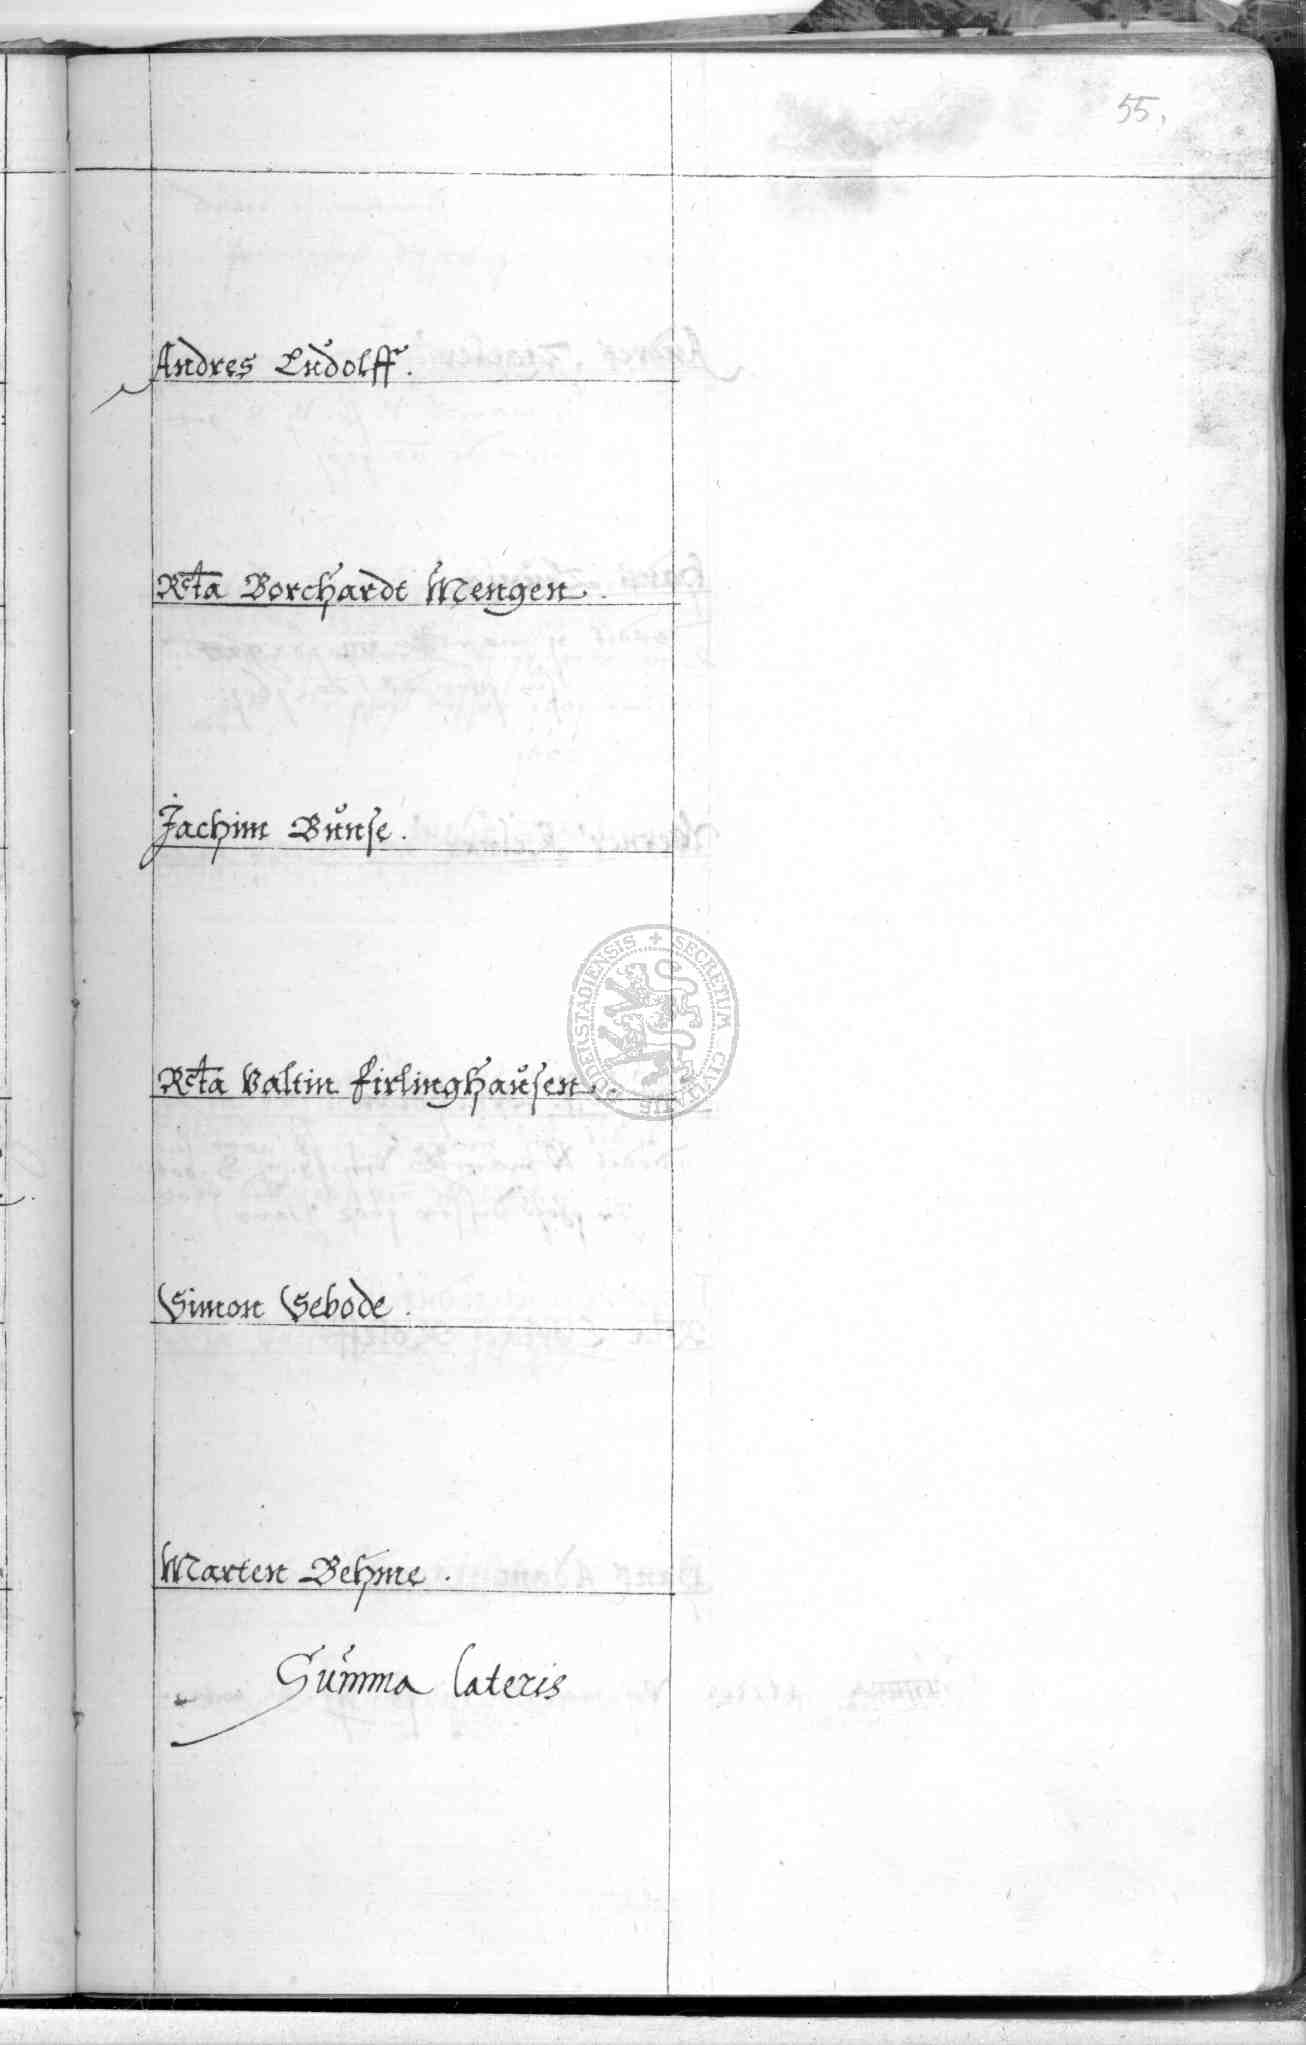 55.
Andres Lůdolff.
Rcta Borchardt Mengen.
Jachim Bůnse.
Rcta Valtin Firlinghaůsen.
Simon Sebode.
Marten Behme.
Sům̃a lateris
SECRETUM CIVITATIS DUDERSTADIENSIS